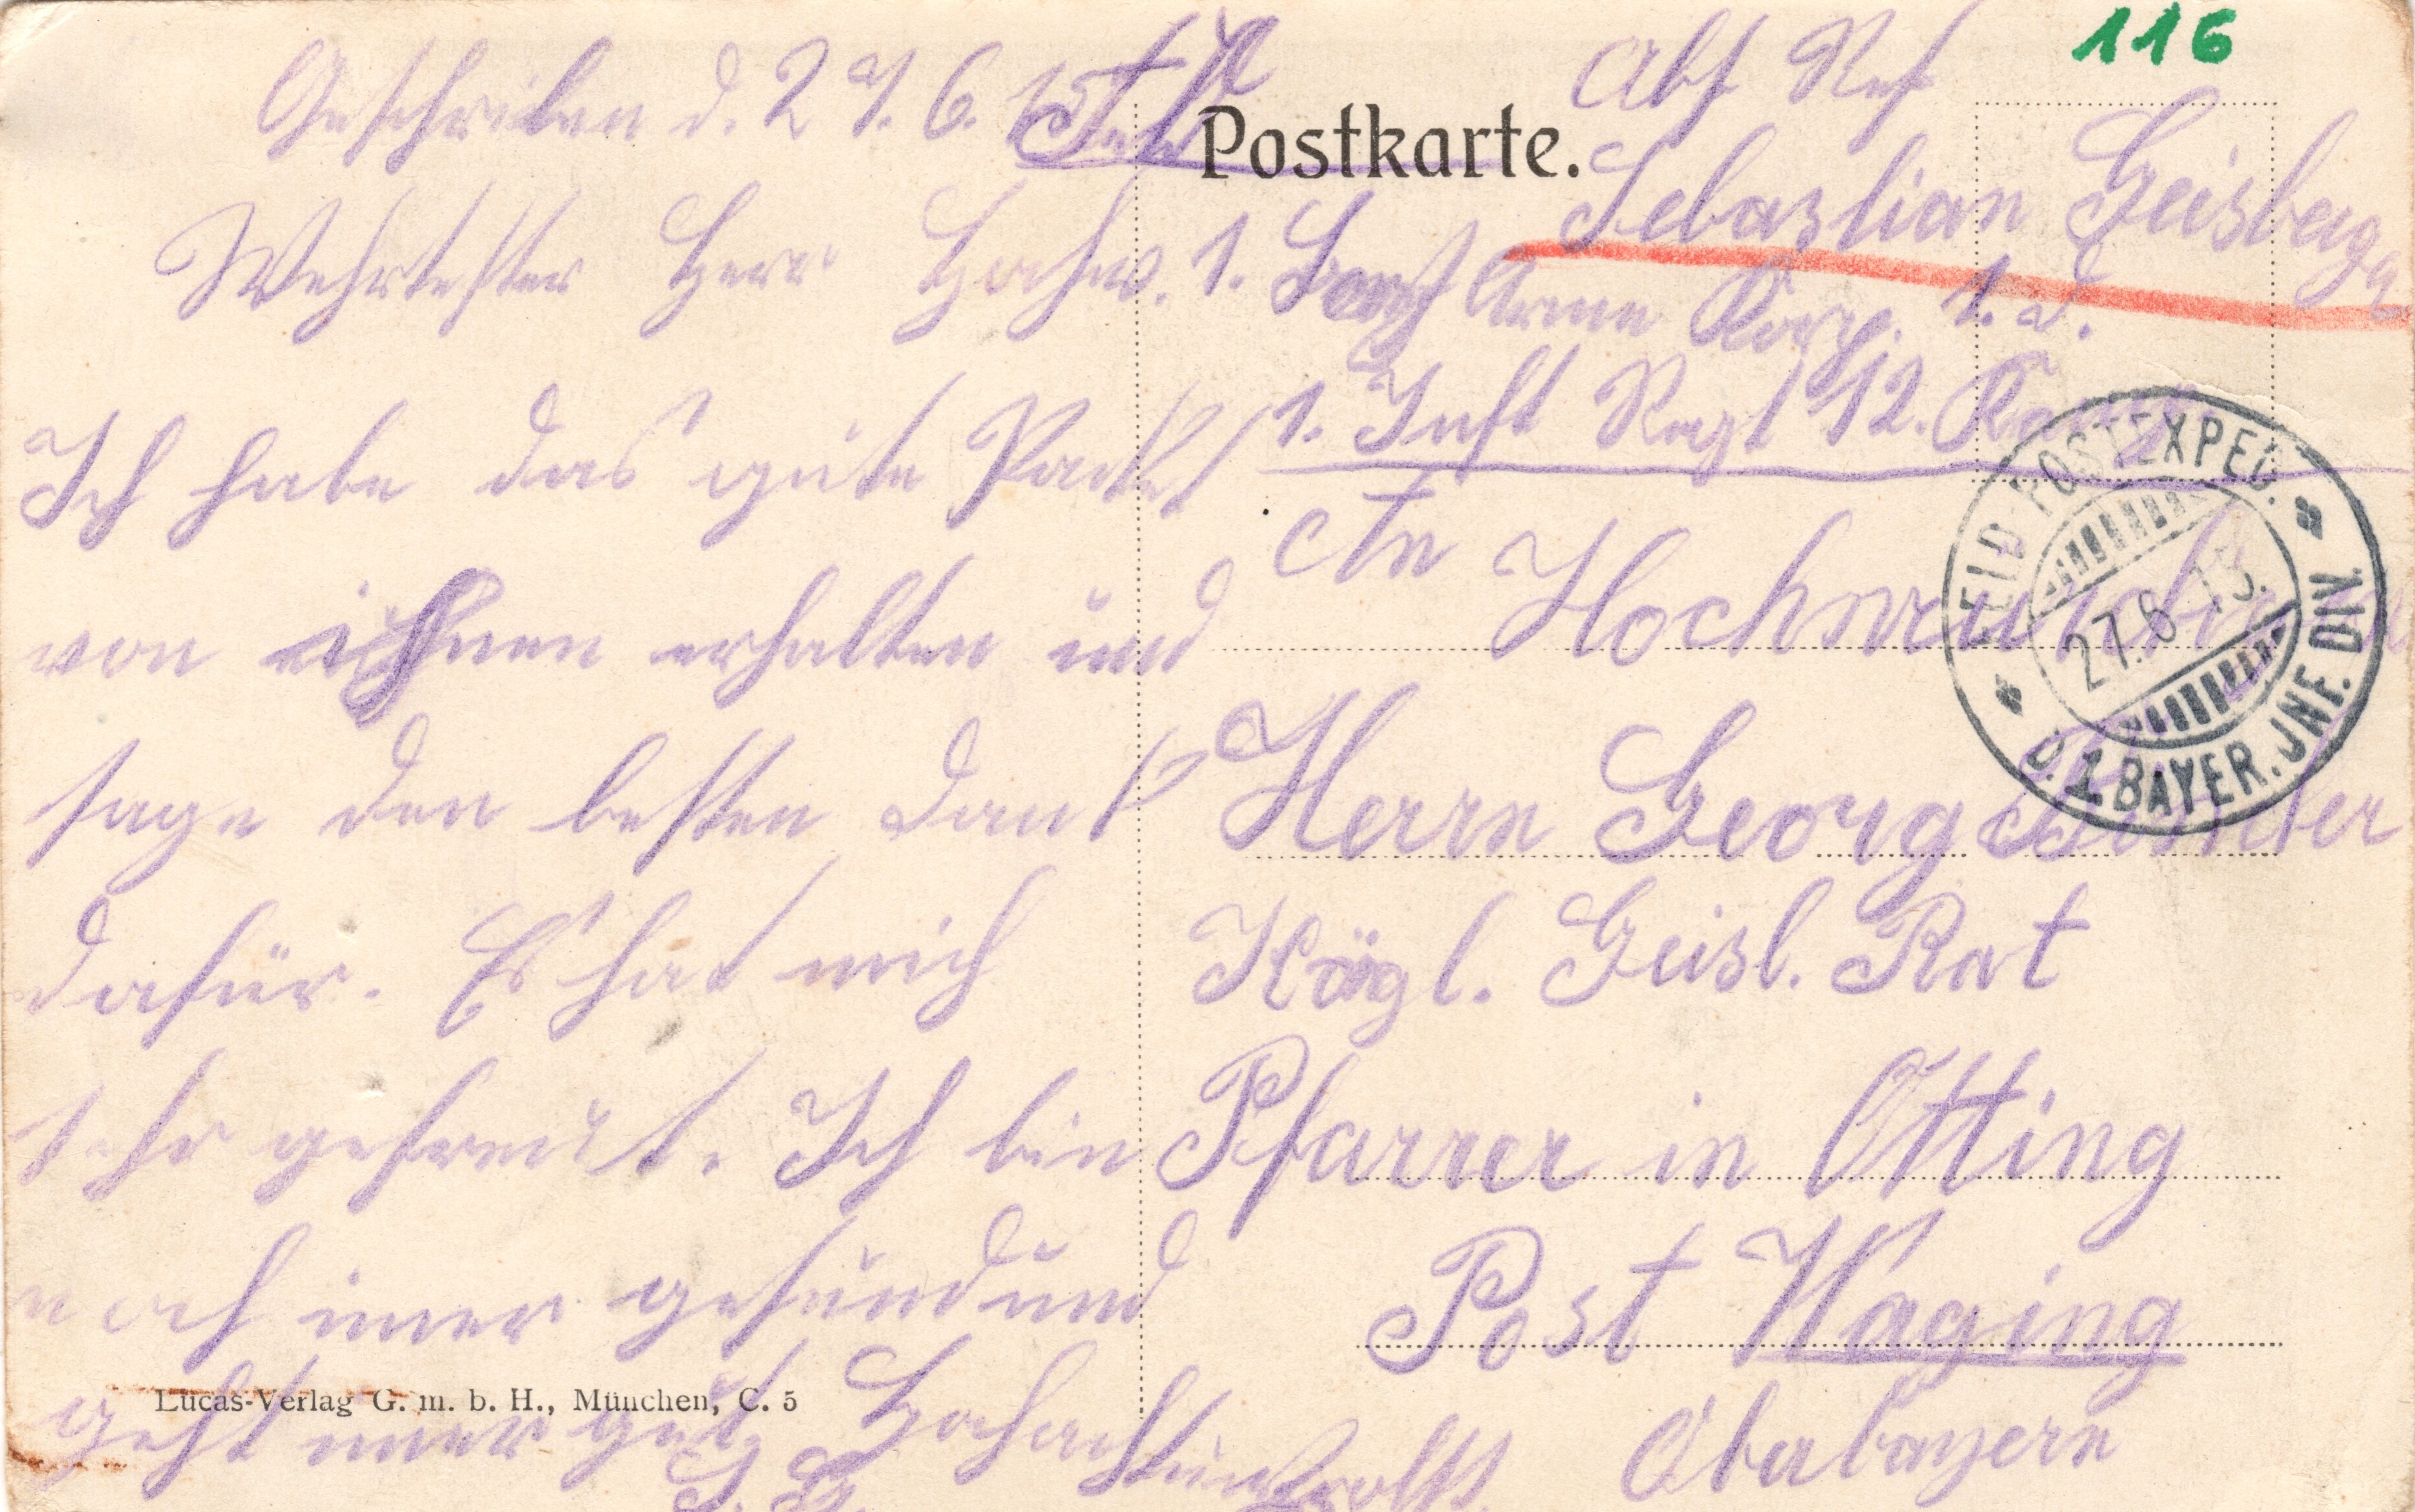 116
Geschrieben d. 27. 6. 15
Wehrtester Herr Hochw.
Ich habe das gute Packet
von ihnen erhalten und
sage den besten Dank
dafür. Es hat mich
sehr gefreut. Ich bin
noch imer gesund und
geht imer gut. Hochachtungsvollst
S. G.
Lucas-Verlag G. m. b. H., München, C. 5
Postkarte.
Abs Res
Sebastian Geisberger
1. Armee Korps. 1. D.
1. Inft Regt 12. Komp
An Hochwürdigen
Herrn Georg
Kögl. Geisl. Rat
Pfarrer in Otting
Post Waging
Oberbayern
FELD-POSTEXPED.
27.6 15.
D. 1. BAYER. JNF. DIV.